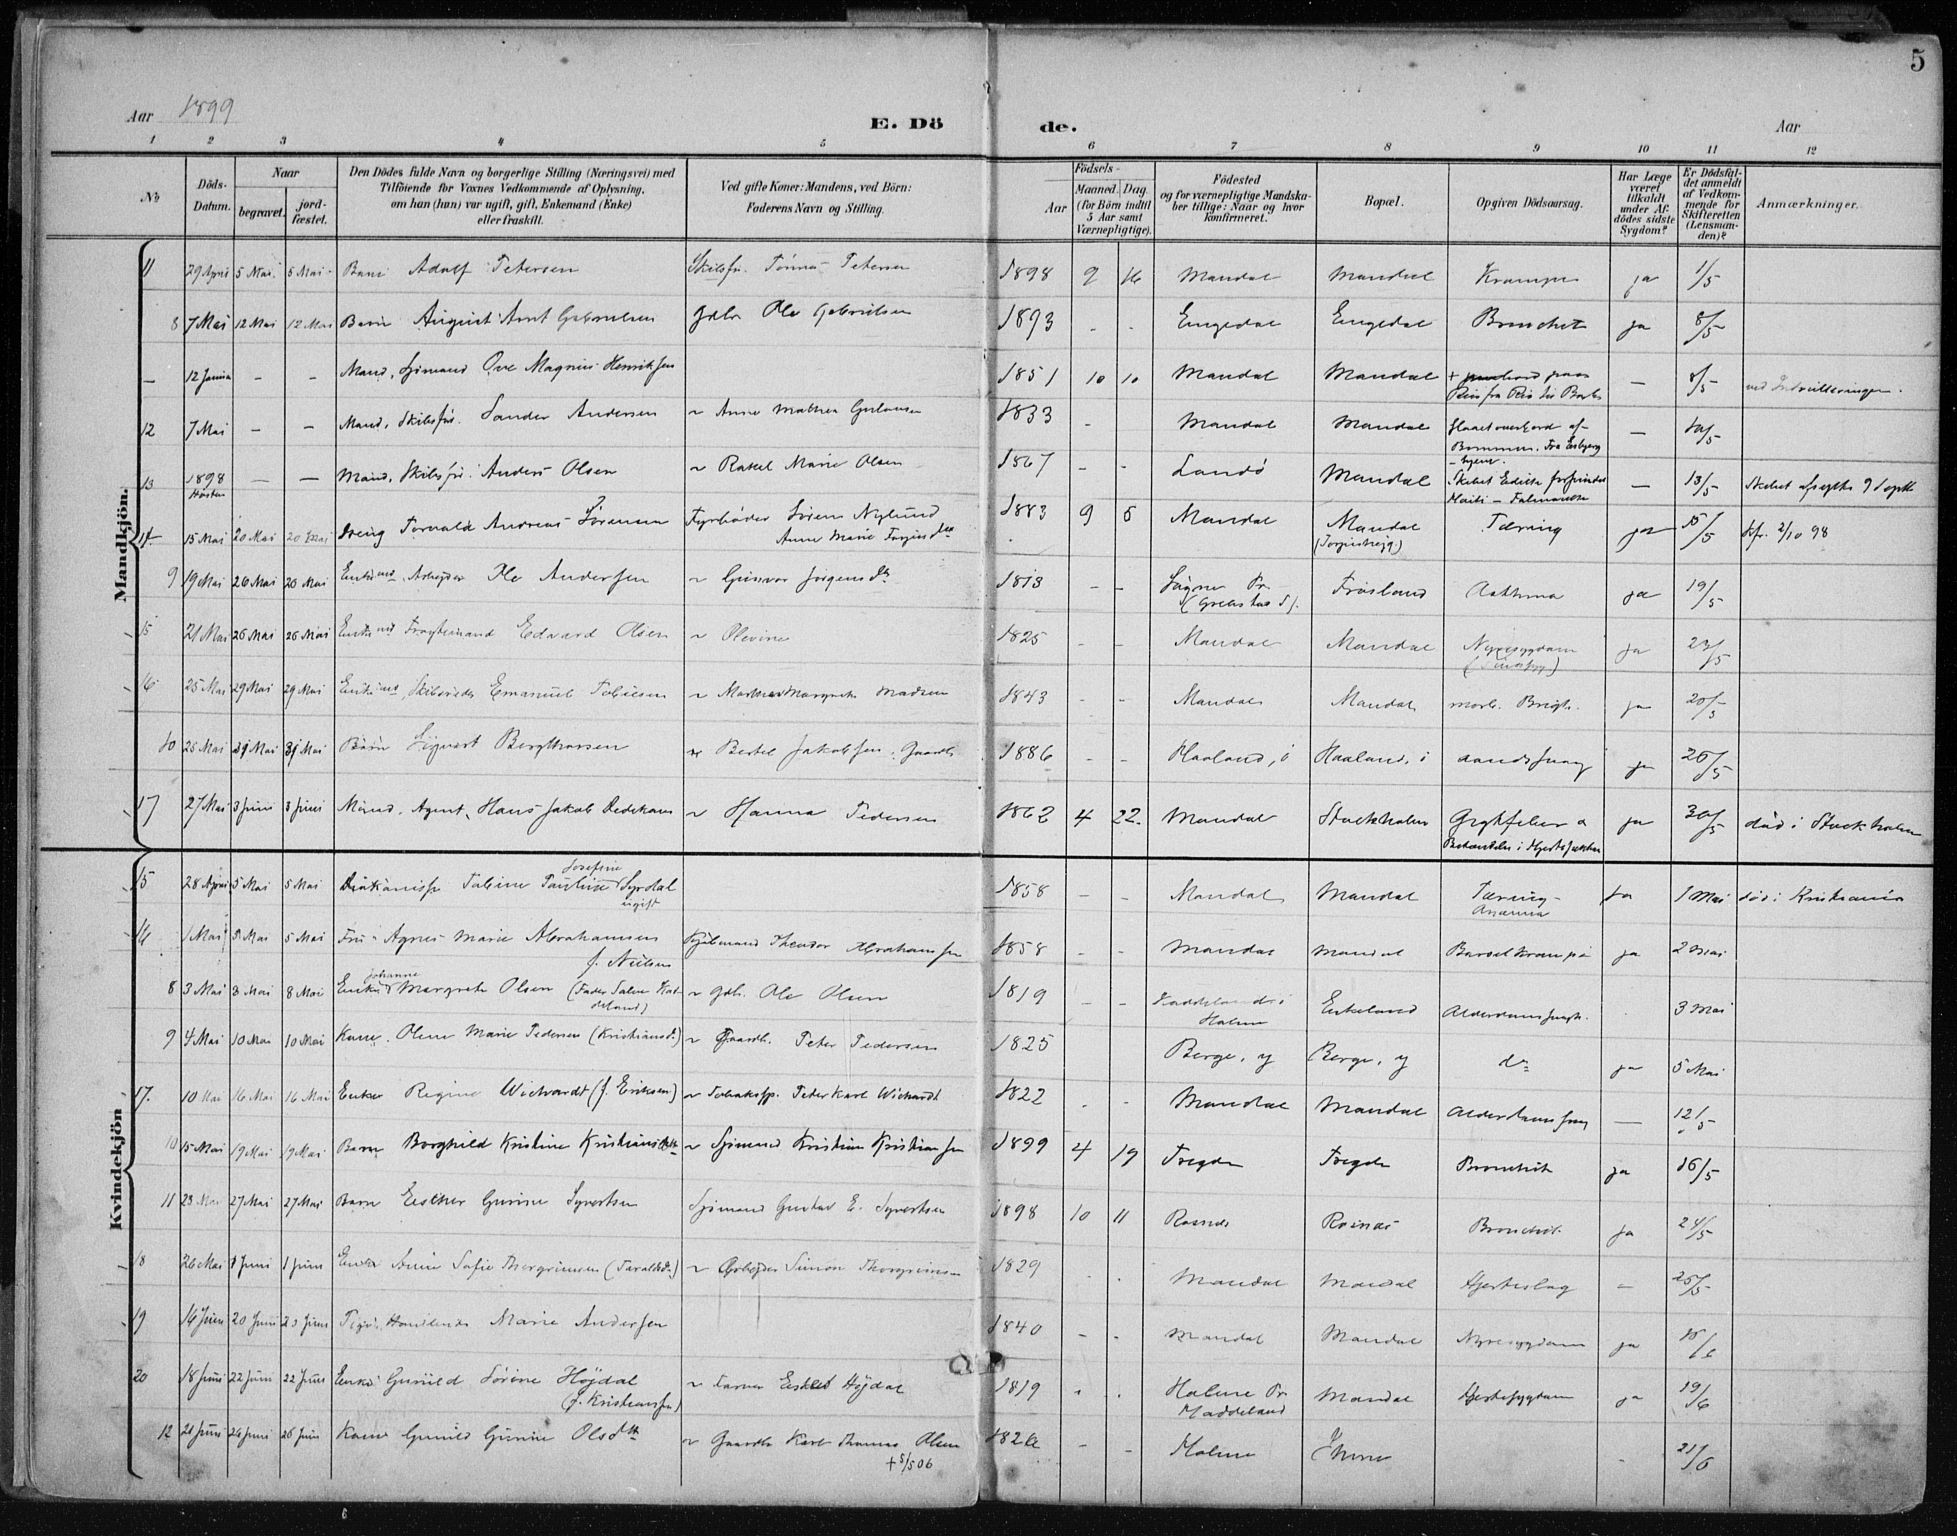 5
Aar 1899
E. Dö
de.
Aar
1 2 3 4 5 6 7 8 9 10 11 12
No
Döds-
Datum.
Naar
begravet.
jord-
fæstet.
Den Dödes fulde Navn og borgerlige Stilling (Næringsvei) med
Tilföiende for Voxnes Vedkommende af Oplysning,
om han (hun) var ugift, gift, Enkemand (Enke)
eller fraskilt.
Ved gifte Koner: Mandens, ved Börn:
Faderens Navn og Stilling.
Födsels-
Aar
Maaned.
Dag.
(for Börn indtil
5 Aar samt
Værnepligtige).
Födested
og for værnepligtige Mandska-
ber tillige: Naar og hvor
konfirmeret.
Bopæl.
Opgiven Dödsaarsag.
Har Læge
været
tilkaldt
under Af-
dödes sidste
Sygdom?
Er Dödsfal-
det anmeldt
af Vedkom-
mende for
Skifteretten
(Lensman-
den)?
Anmærkninger.
Mandkjön.
11 29 April 5 Mai 5 Mai Barn Adolf Petersen Skibsfr. Tönnes Petersen 1898 9 16 Mandal Mandal Krampe ja 1/5
8 7 Mai 12 Mai 12 Mai Barn August Arnt Gabrielsen Gdbr Ole Gabrielsen 1893 - - Emgedal Emgedal Bronchit ja 8/5
- 12 Janua - - Mand, Sjömand Ove Magnus Henriksen 1851 10 10 Mandal Mandal - 8/5
12 7 Mai - - Mand, Skibsför. Sander Andersen ~ Anne Mathea 1833 - Mandal Mandal - 10/5
13 1898 Hösten - - Mand, Skibsför. Anders Olsen ~ Rakel Marie Olsen 1867 - - Landö Mandal - 13/5
14 15 Mai 20 Mai 20 Mai Dreng Torvald Andreas Sörensen Fyrböder Sören Nylund
Anne Marie 1883 9 5 Mandal Mandal Tæring ja 15/5 2/10 98
9 19 Mai 26 Mai 26 Mai Enkemd. Arbejder Ole Andersen ~ Gunvor Jörgensdtr 1813 - - Fröisland Asthma ja 19/5
15 21 Mai 26 Mai 26 Mai Enkemd Edvard Olsen ~ Olevine 1825 - - Mandal Mandal Nyresygdom ja 23/5
16 25 Mai 29 Mai 29 Mai Enkemd, Skibsreder Emanuel Tobiesen ~ Margrete Madsen 1843 - - Mandal Mandal morb. Bright. ja
10 25 Mai 31 Mai 31 Mai Barn Sigvart Berthensen ~ Bertel Jakobsen, Gaardb. 1886 - - Haaland, i Haaland, i ja 26/5
17 27 Mai 3 Juni 3 Juni Mand, Agent, Hans Jakob Dedekam ~ Hanna Pedersen 1862 4 22. Mandal Stockholm ja 30/5 död i Stockholm
Kvindekjön
15 28 April 5 Mai 5 Mai Diakonisse Tobine Pauline Josefine Syrdal
ugift 1858 - - Mandal Mandal Tæring -
Anæmia ja 1 Mai död i Kristiania
16 1 Mai 5 Mai 5 Mai Fru Agnes Marie Abrahamsen
f. Nielsen Kjöbmand Theodor Abrahamsen 1858 - - Mandal Mandal Barselkrampe ja 2 Mai
8 3 Mai 8 Mai 8 Mai Enke Johanne Margrete Olsen ~ gdb. Ole Olsen 1819 - - Haddeland i
Halme Eikeland 3 Mai
9 4 Mai 10 Mai 10 Mai Kone. Olene Marie Pedersen (Kristiansdr) ~ Gaardb. Peter Pedersen 1825 Berge, y Berge, y do ja 5 Mai
17. 10 Mai 16 Mai 16 Mai Enke Regine Wichardt (f. Eriksen) ~ Peter Karl Wichardt 1822 - - Mandal Mandal - 12/5
10 15 Mai 19 Mai 19 Mai Barn Borghild Kristine ~ Sjömand Kristian Kristiansen 1899 4 19 Tregde Tregde Bronchit ja 16/5
11 23 Mai 27 Mai 27 Mai Barn Esther Gurine Syvertsen Sjömand Gustav E. Syvertsen 1898 10 11 Rosnes Rosnes Bronchit ja 24/5
18 26 Mai 1 Juni 1 Juni Enke Anne Sofie Thorgrimsen ~ Arbejder Simon Thorgrimsen 1829 - - Mandal Mandal Hjerteslag - 25/5
19 16 Juni 20 Juni 20 Juni Marie Andersen 1840 - - Mandal Mandal Nyresygdom ja 15/6
20 18 Juni 22 Juni 22 Juni Enke Gunild Sörine Höjdal
(f. Kristiansen) ~ Höjdal 1819 - - Halme Pr
Haddeland Mandal Hjertesygdom ja 19/6
12 21 Juni 26 Juni 26 Juni Kone Gunild Gurine Olsdtr ~ Gaardb. Karl Thomas Olsen
+ 5/5 06 1826 - - Halme 21/6